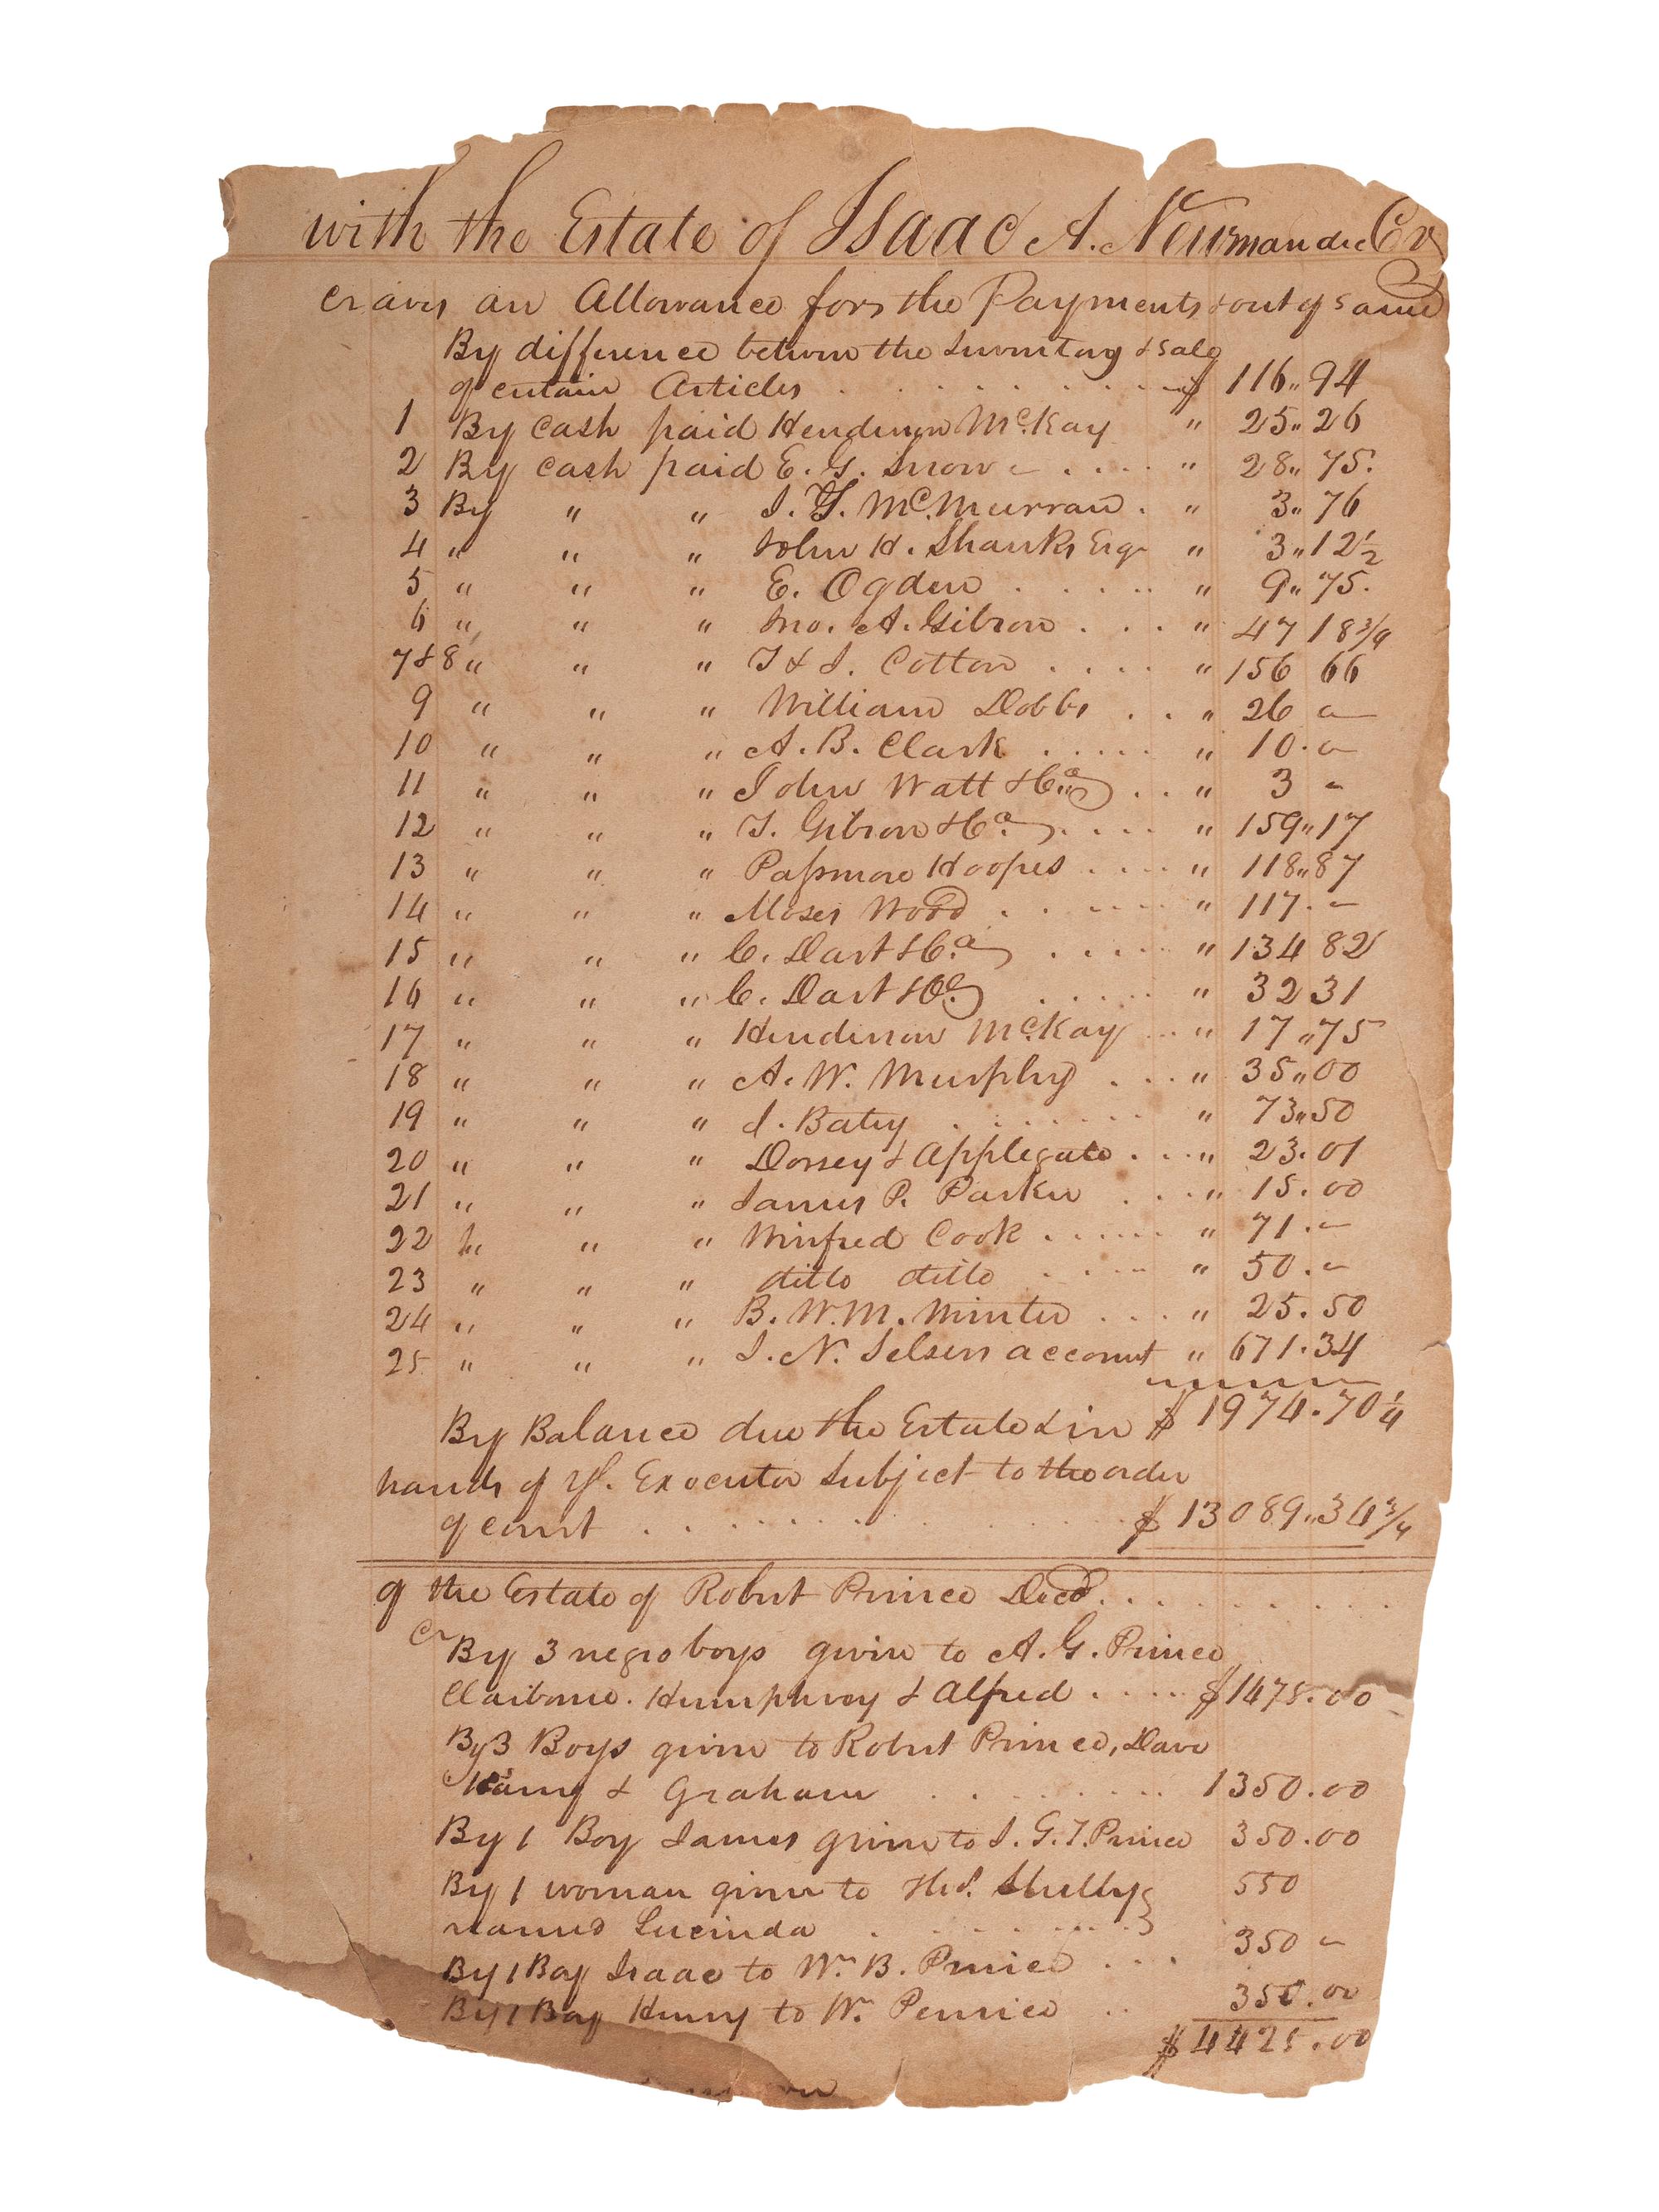 with the Estate of Isaac A. Newman dec Cr
craves an Allowance for the Payments out of same
By difference between the Inventory & sale
of certain Articles $ 116,, 94
1 By Cash paid Henderson McKay " 25,, 26
2 By Cash paid E. G. Snow " 28,, 75.
3 By " " J. G. McMurran . " 3,, 76
4 " " " John H. Shanks Esqr " 3,, 12 1/2
5 " " " E. Ogden " 9,, 75.
6 " " " Jno. A. Gibson " 47 18 3/4
7 & 8 " " " T & J. Cotton " 156 66
9 " " " William Dobbs " 26 —
10 " " " A. B. Clark " 10. —
11 " " " John Watt & Co " 3 —
12 " " " T. Gibson & Co " 159,, 17
13 " " " Passmore Hoopes " 118,, 87
14 " " " Moses Wood " 117. —
15 " " " C. Dart & Co " 134 82
16 " " " C. Dart & Co " 32 31
17 " " " Henderson McKay " 17,, 75
18 " " " A. W. Murphy " 35,, 00
19 " " " J. Baty " 73,, 50
20 " " " Dorsey & Applegate " 23. 01
21 " " " James P. Parker " 15. 00
22 " " " Winfred Cook " 71. —
23 " " " ditto ditto " 50. —
24 " " " B. W. M. Minter " 25. 50
25 " " " J. N. Selsers account " 671. 34
$ 1974. 70 1/4
By Balance due the Estate & in
hands of ye. Executor Subject to the order
of court $ 13089,, 34 3/4
of the Estate of Robert Prince Decd.
Cr By 3 negro boys given to A. G. Prince
Claiborne. Humphrey & Alfred $ 1475. 00
By 3 Boys given to Robert Prince, Dave
& Graham 1350. 00
By 1 Boy James given to J. G. T. Prince 350. 00
By 1 woman given to Shelby 550
named Lucinda
By 1 Boy Isaac to Wm B. Prince 350 —
By 1 Boy Henry to Wm. 350. 00
$ 4425. 00